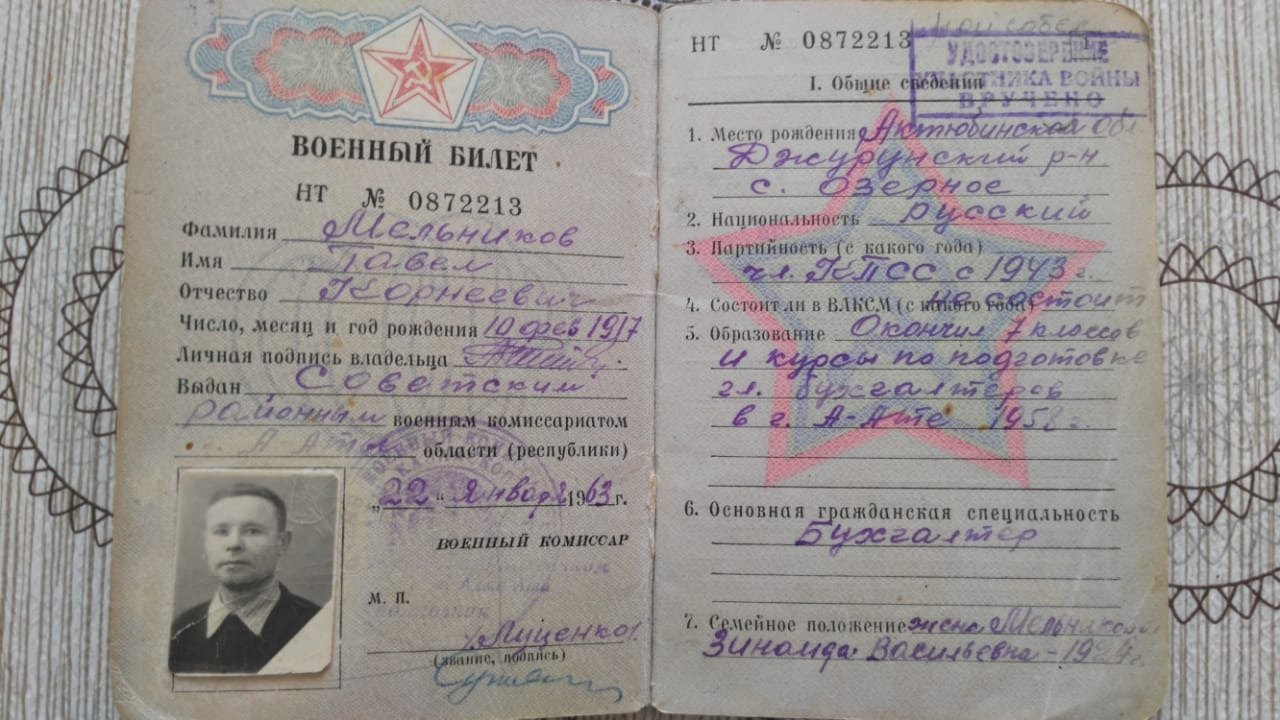 ВОЕННЫЙ БИЛЕТ
НТ № 0872213
Фамилия Мельников
Имя Павел
Отчество Корнеевич
Число, месяц и год рождения 10 фев 1917
Личная подпись владельца
Выдан Советским
районным военным комиссариатом
г. А-Аты области (республики)
„22“ января 1963 г.
ВОЕННЫЙ КОМИССАР
М. П.
Луценко
(звание, подпись)
НТ № 0872213
УДОСТОВЕРЕНИЕ
УЧАСТНИКА ВОЙНЫ
ВРУЧЕНО
I. Общие сведения
1. Место рождения Актюбинская обл.
Джурунский р-н
с. Озерное
2. Национальность русский
3. Партийность (с какого года)
чл. КПСС с 1943 г.
4. Состоит ли в ВЛКСМ (с какого года) не состоит
5. Образование Окончил 7 классов
и курсы по подготовке
гл. бухгалтеров
в г. А-Ате 1958 г.
6. Основная гражданская специальность
Бухгалтер
7. Семейное положение жена Мельникова
Зинаида Васильевна -